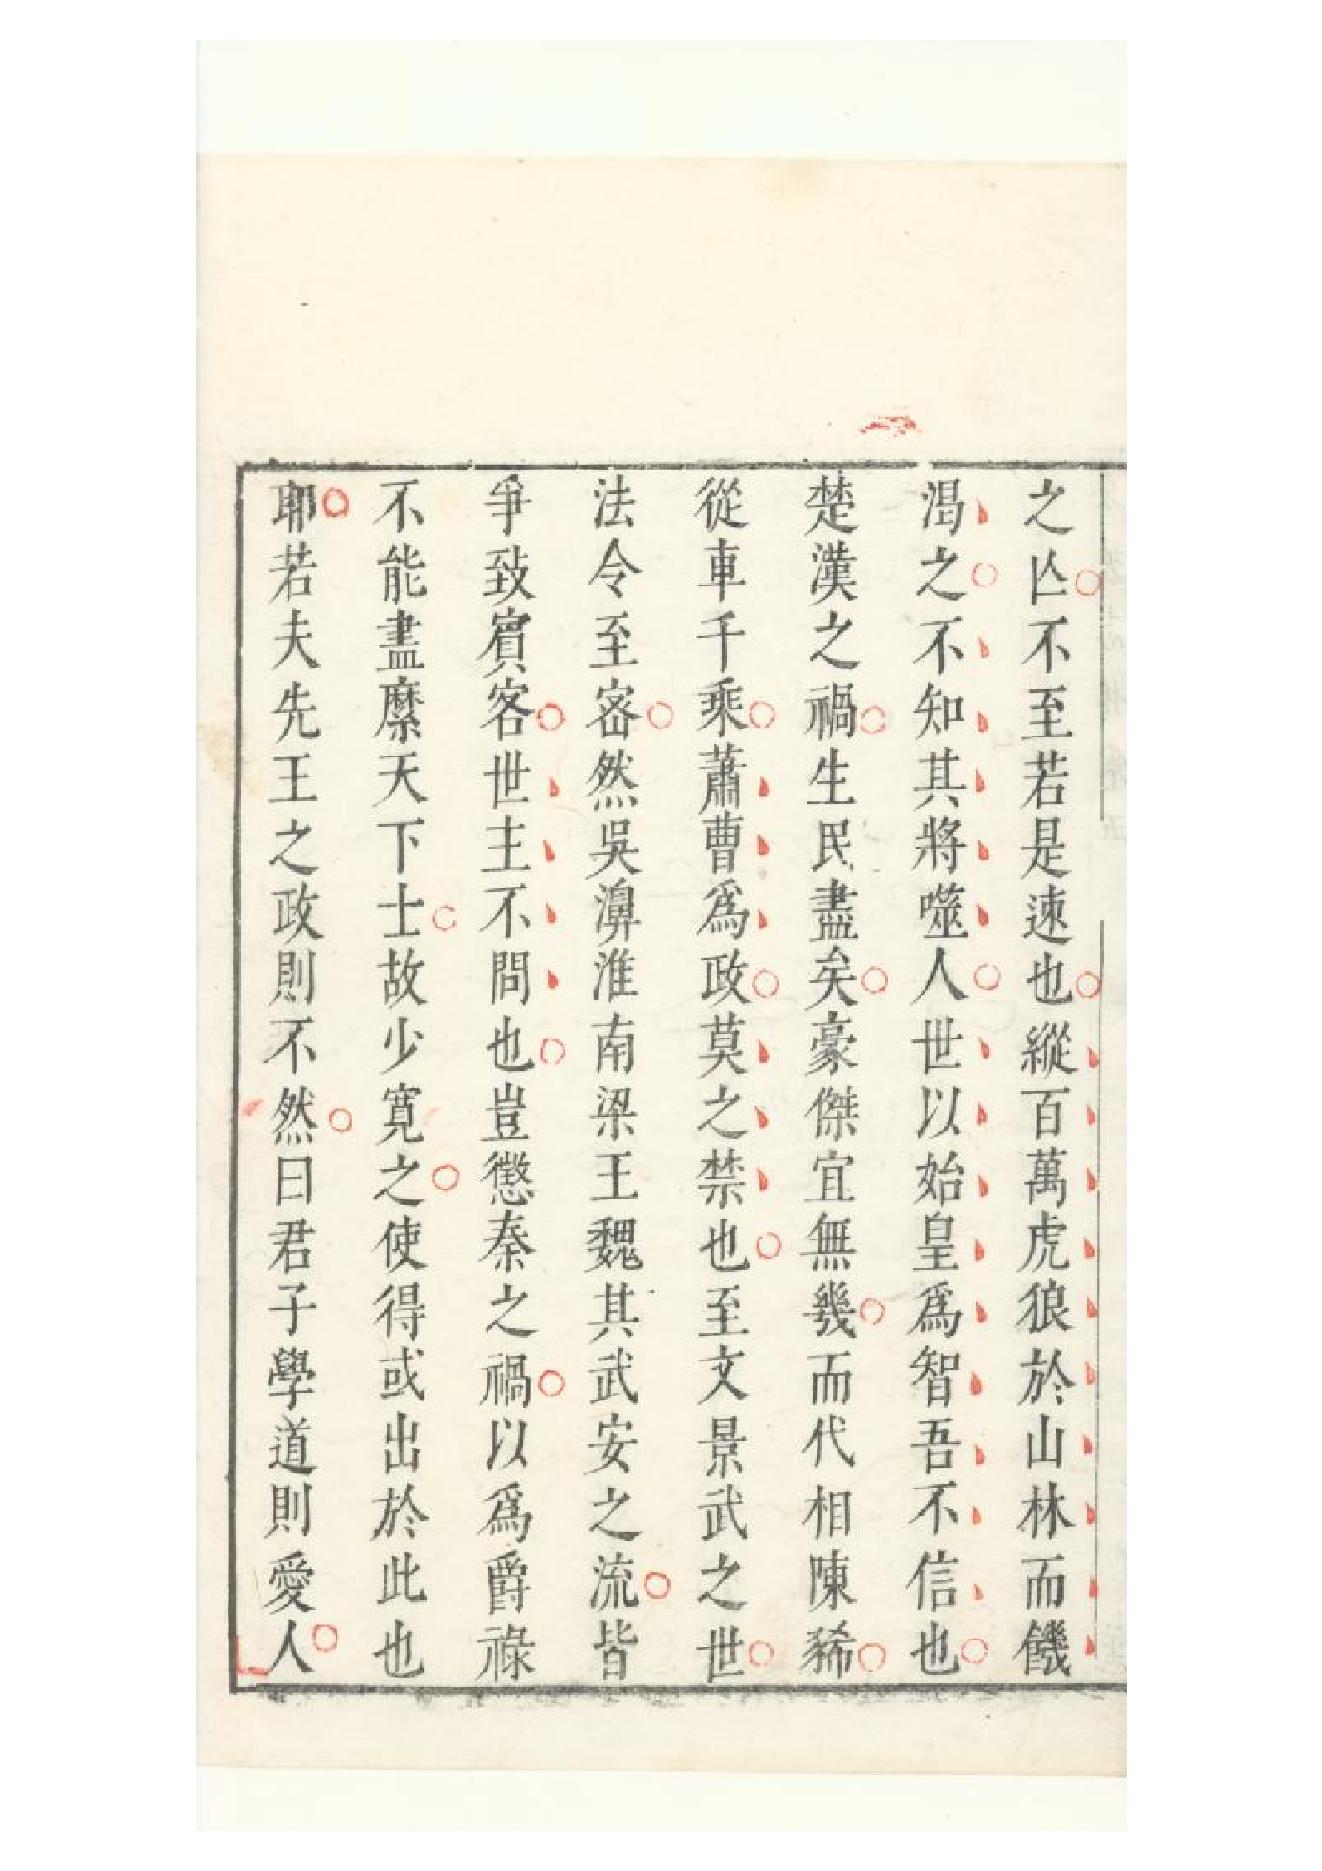 之亾不至若是速也縱百萬虎狼於山林而饑
渴之不知其將噬人世以始皇爲智吾不信也
楚漢之禍生民盡矣豪傑宜無幾而代相陳豨
從車千乘蕭曹爲政莫之禁也至文景武之世
法令至宻然吳濞淮南梁王魏其武安之流皆
爭致賓客世主不問也豈懲秦之禍以爲爵祿
不能盡縻天下士故少寬之使得或出於此也
耶若夫先王之政則不然曰君子學道則愛人